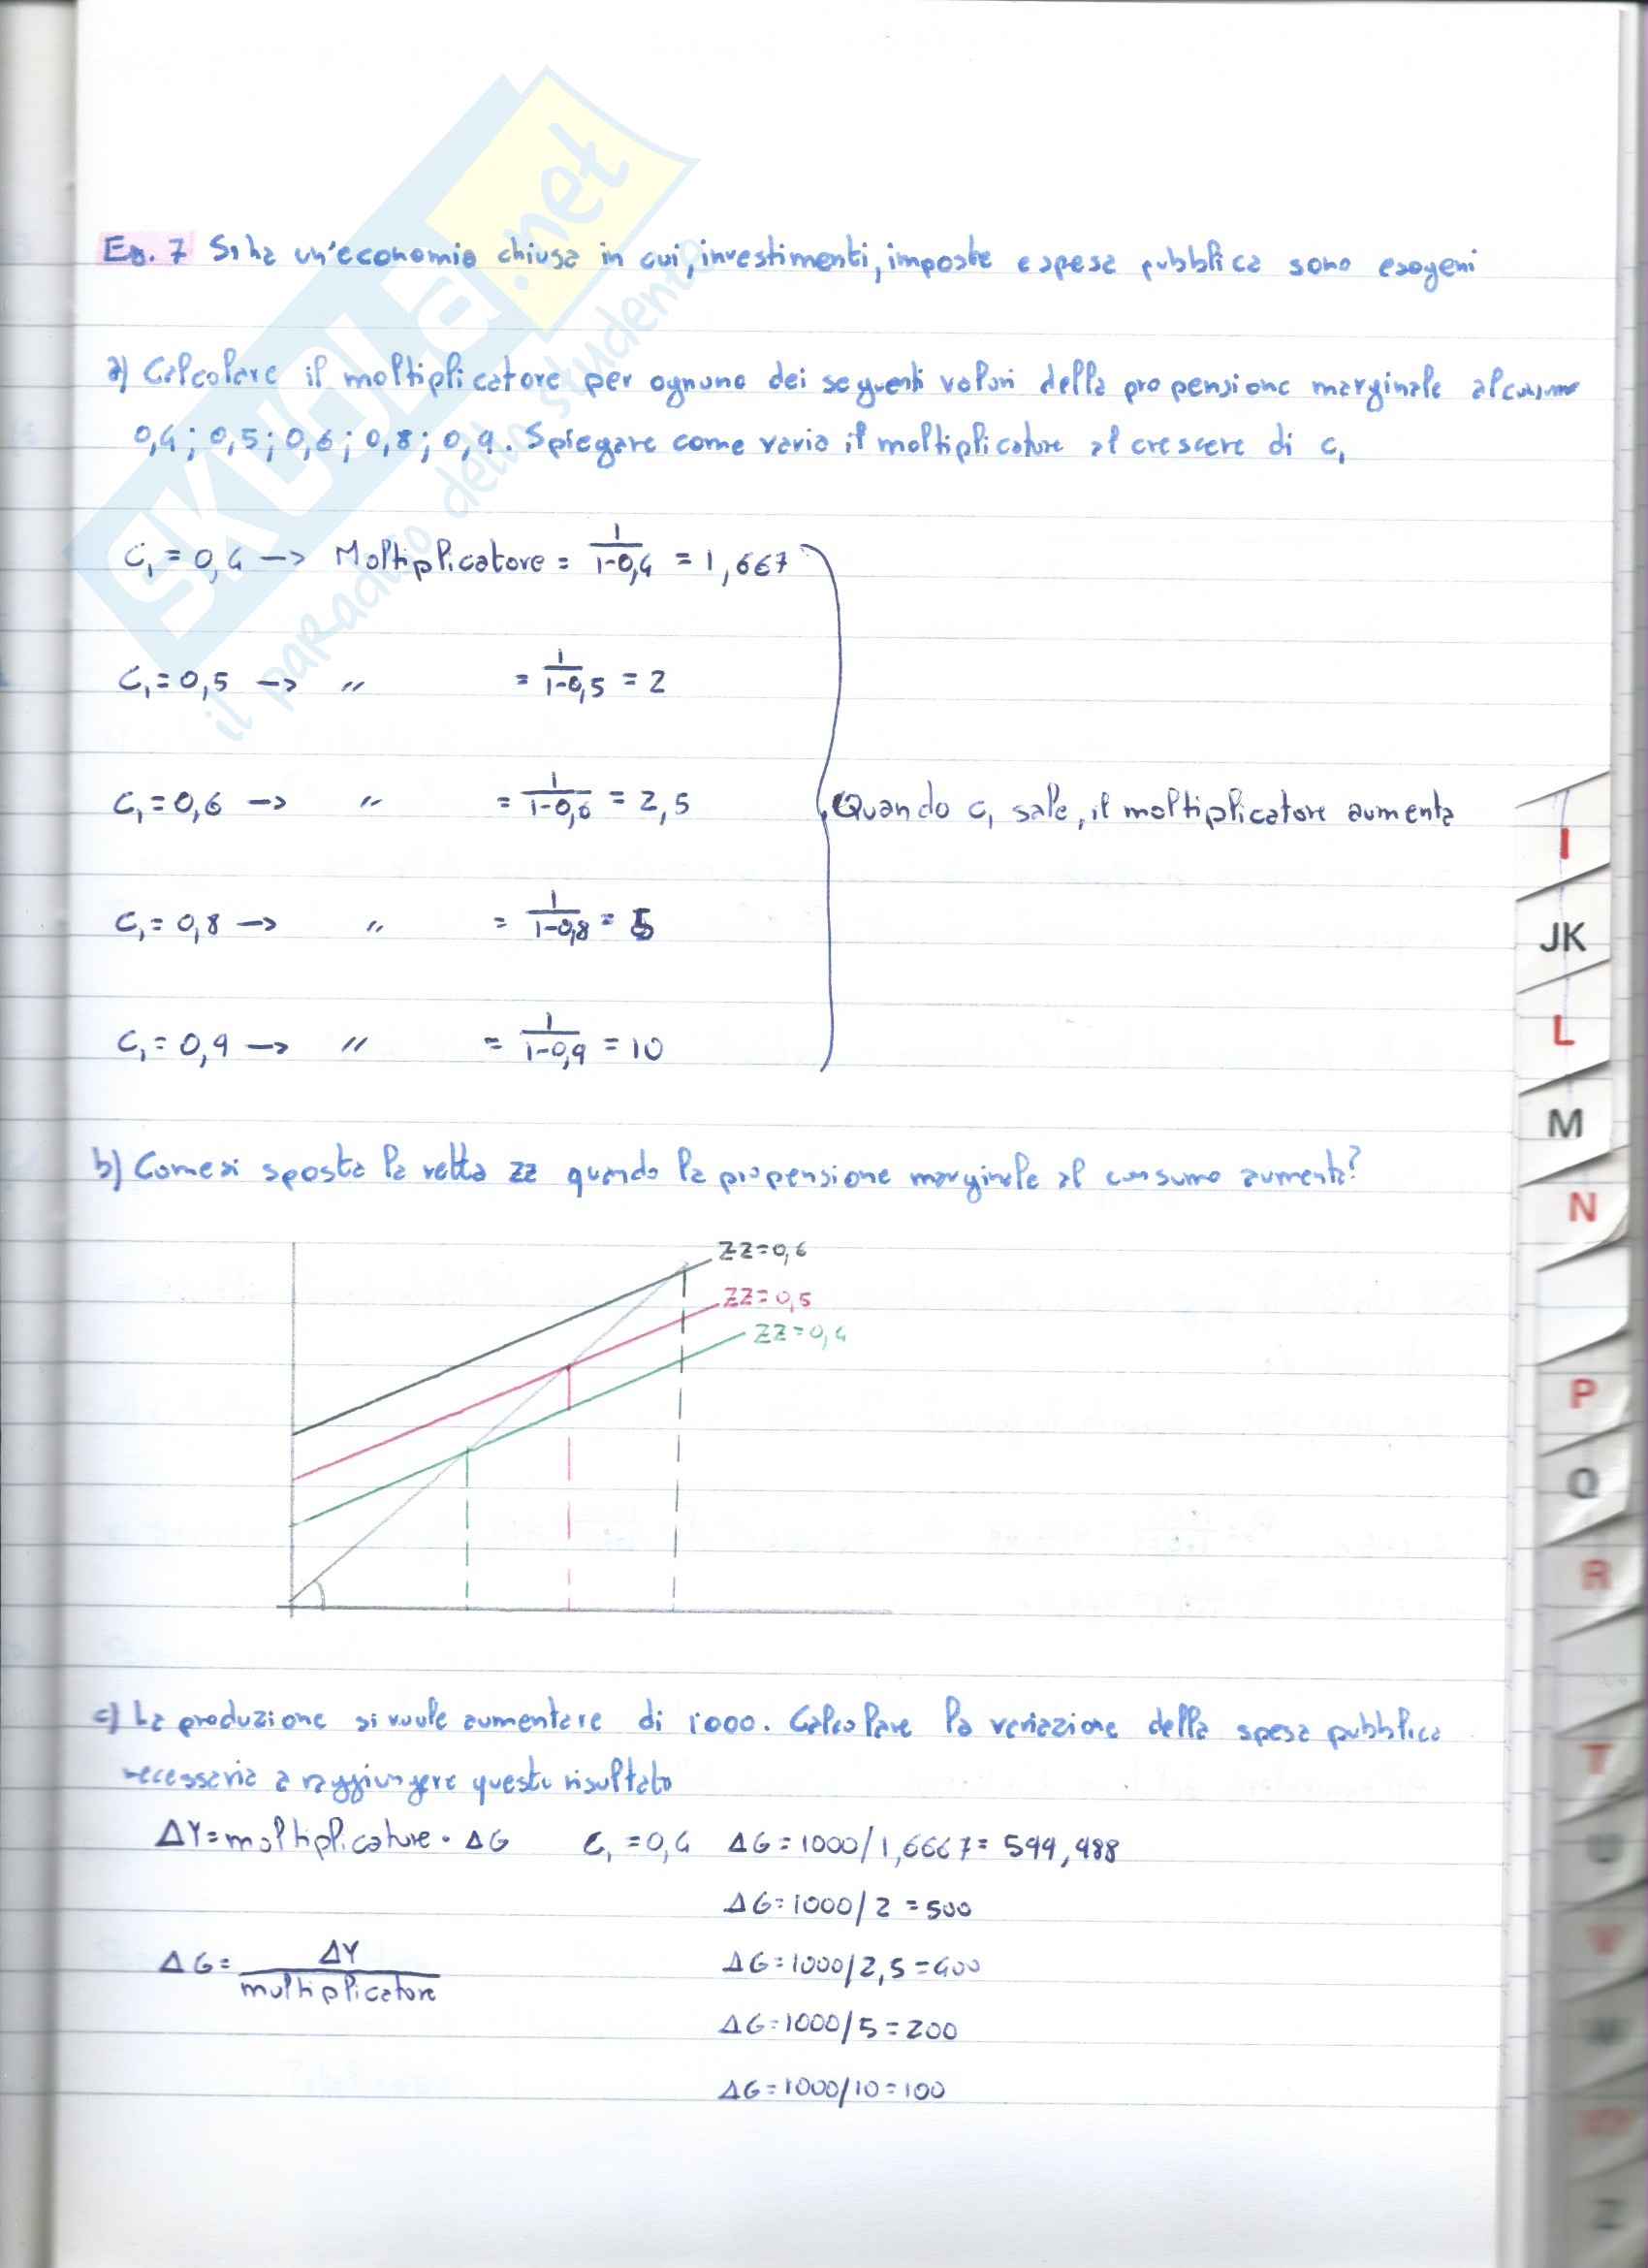 SKUOLA.net
il paRadiso dello studente
Es. 7 Si ha un'economia chiusa in cui, investimenti, imposte e spesa pubblica sono esogeni
a) Calcolare il moltiplicatore per ognuno dei seguenti valori della propensione marginale al consumo
0,4; 0,5; 0,6; 0,8; 0,9. Spiegare come varia il moltiplicatore al crescere di c₁
C₁ = 0,4 -> Moltiplicatore = 1/(1-0,4) = 1,667
C₁ = 0,5 -> " = 1/(1-0,5) = 2
C₁ = 0,6 -> " = 1/(1-0,6) = 2,5
Quando c₁ sale, il moltiplicatore aumenta
C₁ = 0,8 -> " = 1/(1-0,8) = 5
C₁ = 0,9 -> " = 1/(1-0,9) = 10
b) Come si sposta la retta ZZ quando la propensione marginale al consumo aumenta?
ZZ=0,6
ZZ=0,5
ZZ=0,4
c) La produzione si vuole aumentare di 1000. Calcolare la variazione della spesa pubblica
necessaria a raggiungere questo risultato
ΔY = moltiplicatore · ΔG C₁ = 0,4 ΔG = 1000/1,6667 = 599,988
ΔG = 1000/2 = 500
ΔG = ΔY/moltiplicatore ΔG = 1000/2,5 = 400
ΔG = 1000/5 = 200
ΔG = 1000/10 = 100
I
JK
L
M
N
P
Q
R
T
U
Z